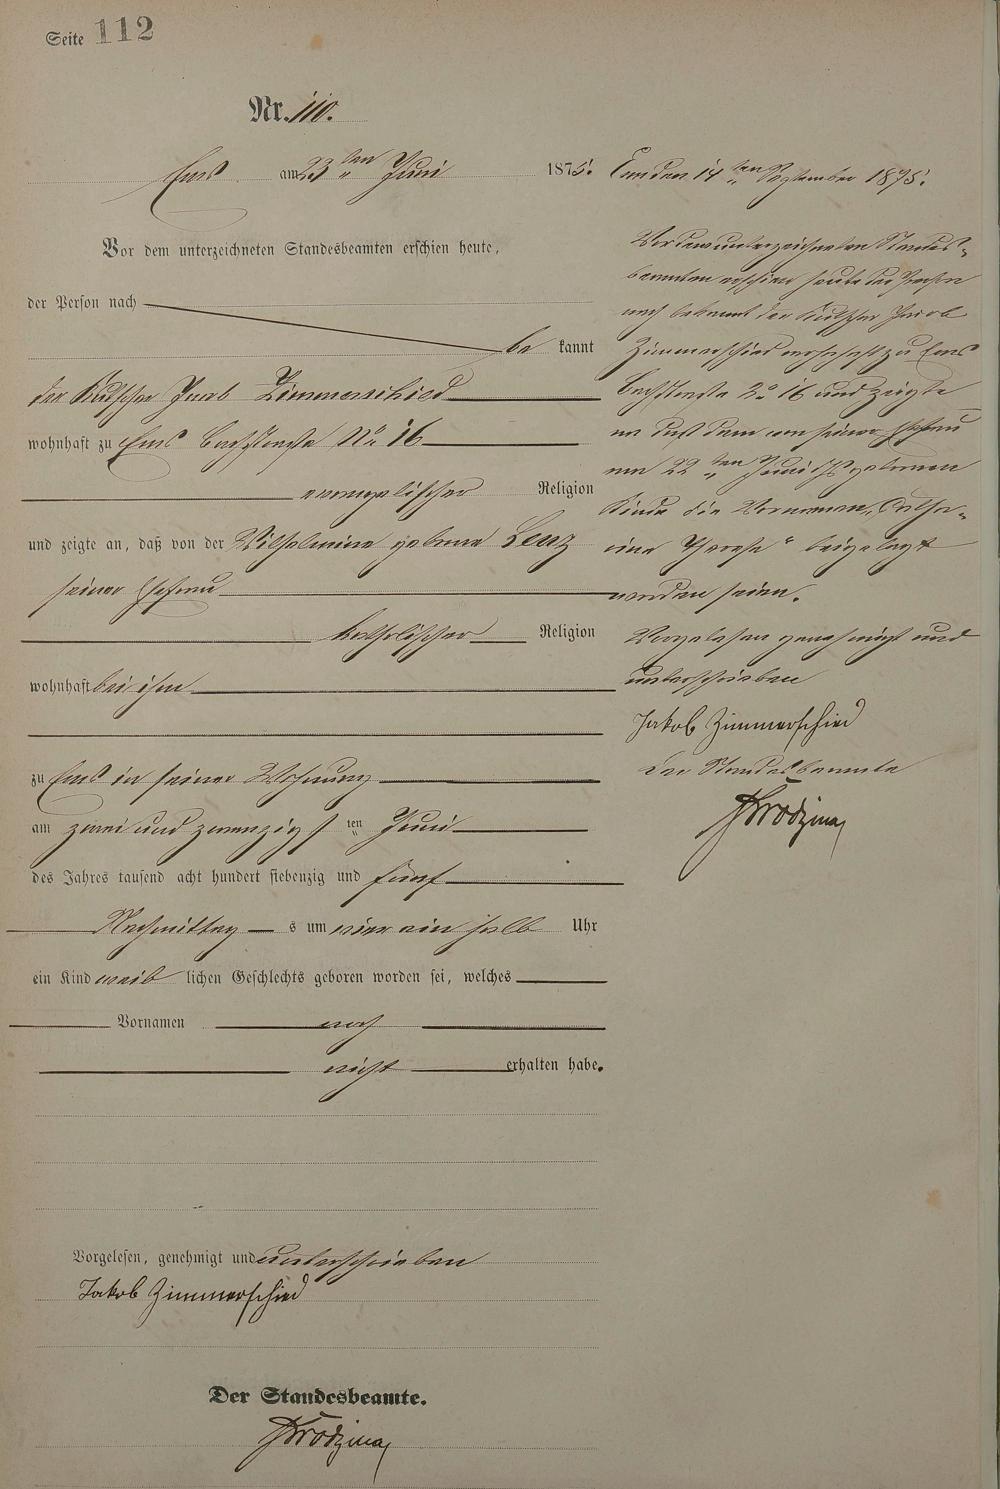 Seite 112
Nr. 110.
Ems am 23ten Juni 1875.
Vor dem unterzeichneten Standesbeamten erschien heute,
der Person nach
be kannt
der Kutscher Jacob Zimmerschied
wohnhaft zu Ems Bachstraße No 16
evangelischer Religion
und zeigte an, daß von der Wilhelmine geborne Lenz
seiner Ehefrau
katholischer Religion
wohnhaft bei ihm
zu Ems in seiner Wohnung
am zwei und zwanzigsten Juni
des Jahres tausend acht hundert siebenzig und fünf
Nachmittag s um vier ein halb Uhr
ein Kind weib lichen Geschlechts geboren worden sei, welches
Vornamen noch
nicht erhalten habe.
Vorgelesen, genehmigt und unterschrieben
Jakob Zimmerschied
Der Standesbeamte.
Ems den 14ten September 1875.
Vor dem unterzeichneten Standes-
beamten erschien heute der Person
nach bekannt der Kutscher Jacob
Zimmerschied wohnhaft zu Ems
Bachstraße No 16 und zeigte
an daß dem von seiner Ehefrau
am 22ten Juni geborenen
Kinde die Vornamen „Catha-
rina Therese“ beigelegt
worden seien.
Vorgelesen genehmigt und
unterschrieben
Jakob Zimmerschied
Der Standesbeamte